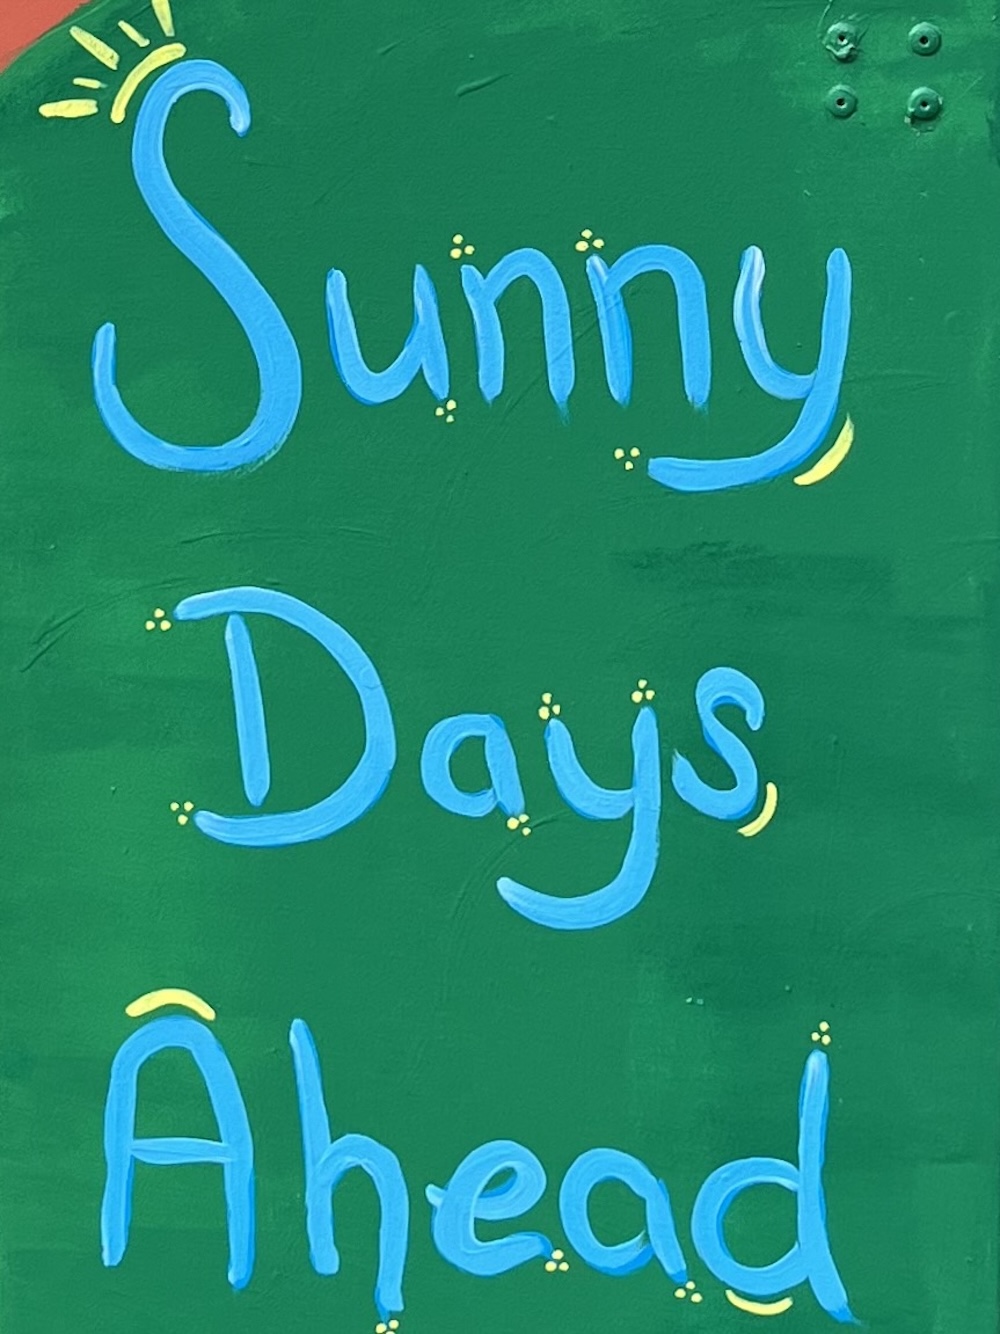 Sunny
Days
Ahead